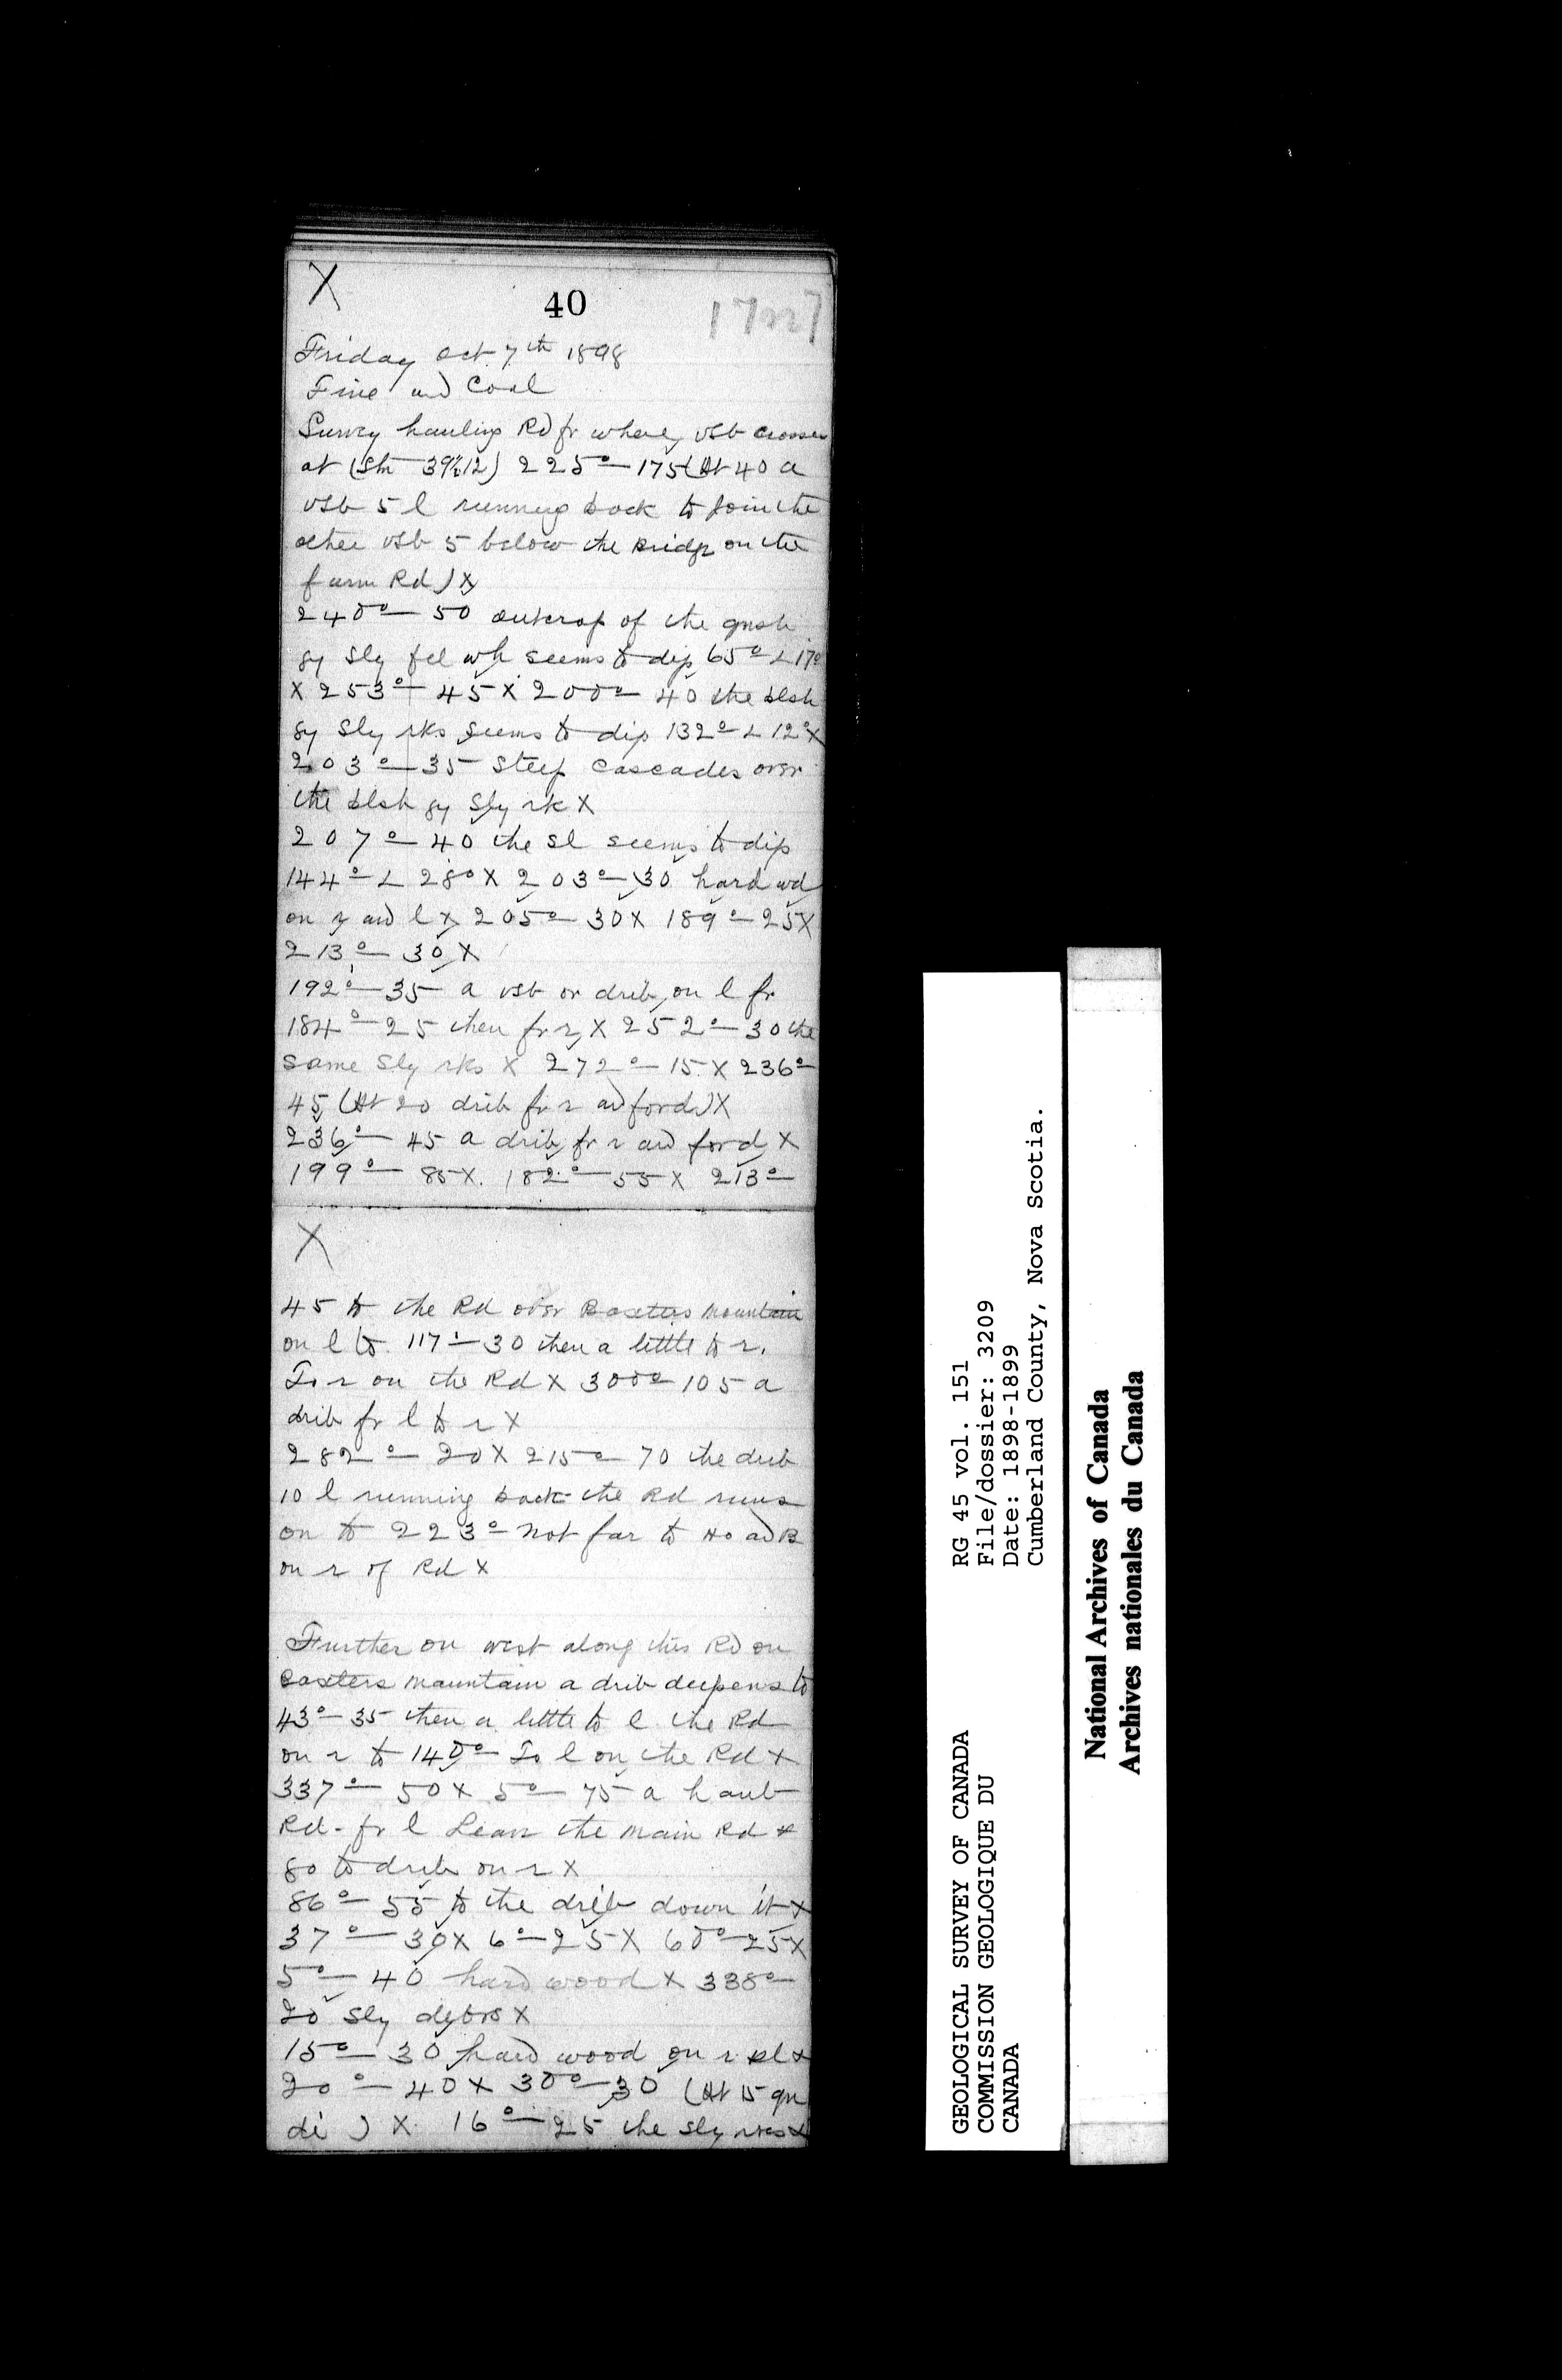 X
40
17227
Friday Oct. 7th 1898
Fine and Cool
Survey hauling Rd fr where vsb crosses
at (Stn 39½12) 225° — 175 (At 40 a
vsb 5 l running back to join the
other vsb 5 below the bridge on the
farm Rd) X
240° — 50 outcrop of the gnsh
gy sly fel wh seems to dip 65° L 17°
X 253° — 45 X 200° — 40 the blsh
gy sly rks seems to dip 132° L 12° X
203° — 35 steep cascades over
the blsh gy sly rk X
207° — 40 the sl seems to dip
144° L 28° X 203° — 30 hard wd
on r and l X 205° — 30 X 189° — 25 X
213° — 30 X
192° — 35 a vsb or drib on l fr
184° — 25 then fr r X 252° — 30 the
same sly rks X 272° — 15 X 236° —
45 (At 20 drib fr r and fords) X
236° — 45 a drib fr r and ford X
199° — 85 X. 182° — 55 X 213° —
X
45 to the Rd over Baxters Mountain
on l to 117° — 30 then a little to r.
To r on the Rd X 300° — 105 a
drib fr l to r X
282° — 20 X 215° — 70 the drib
10 l running back the Rd runs
on to 223° — not far to Ho and B
on r of Rd X
Further on west along this Rd on
Baxters Mountain a drib deepens to
43° — 35 then a little to l the Rd
on r to 140° — To l on the Rd X
337° — 50 X 5° — 75 a haul
Rd - fr l Leave the main Rd &
go to drib on r X
86° — 55 to the drib down it X
37° — 30 X 6° — 25 X 60° — 25 X
5° — 40 hard wood X 338° —
20 sly debris X
15° — 30 hard wood on r &l X
20° — 40 X 30° — 30 (At 15 gn
di) X 16° — 25 the sly rks X
GEOLOGICAL SURVEY OF CANADA
COMMISSION GEOLOGIQUE DU
CANADA
RG 45 vol. 151
File/dossier: 3209
Date: 1898-1899
Cumberland County, Nova Scotia.
National Archives of Canada
Archives nationales du Canada